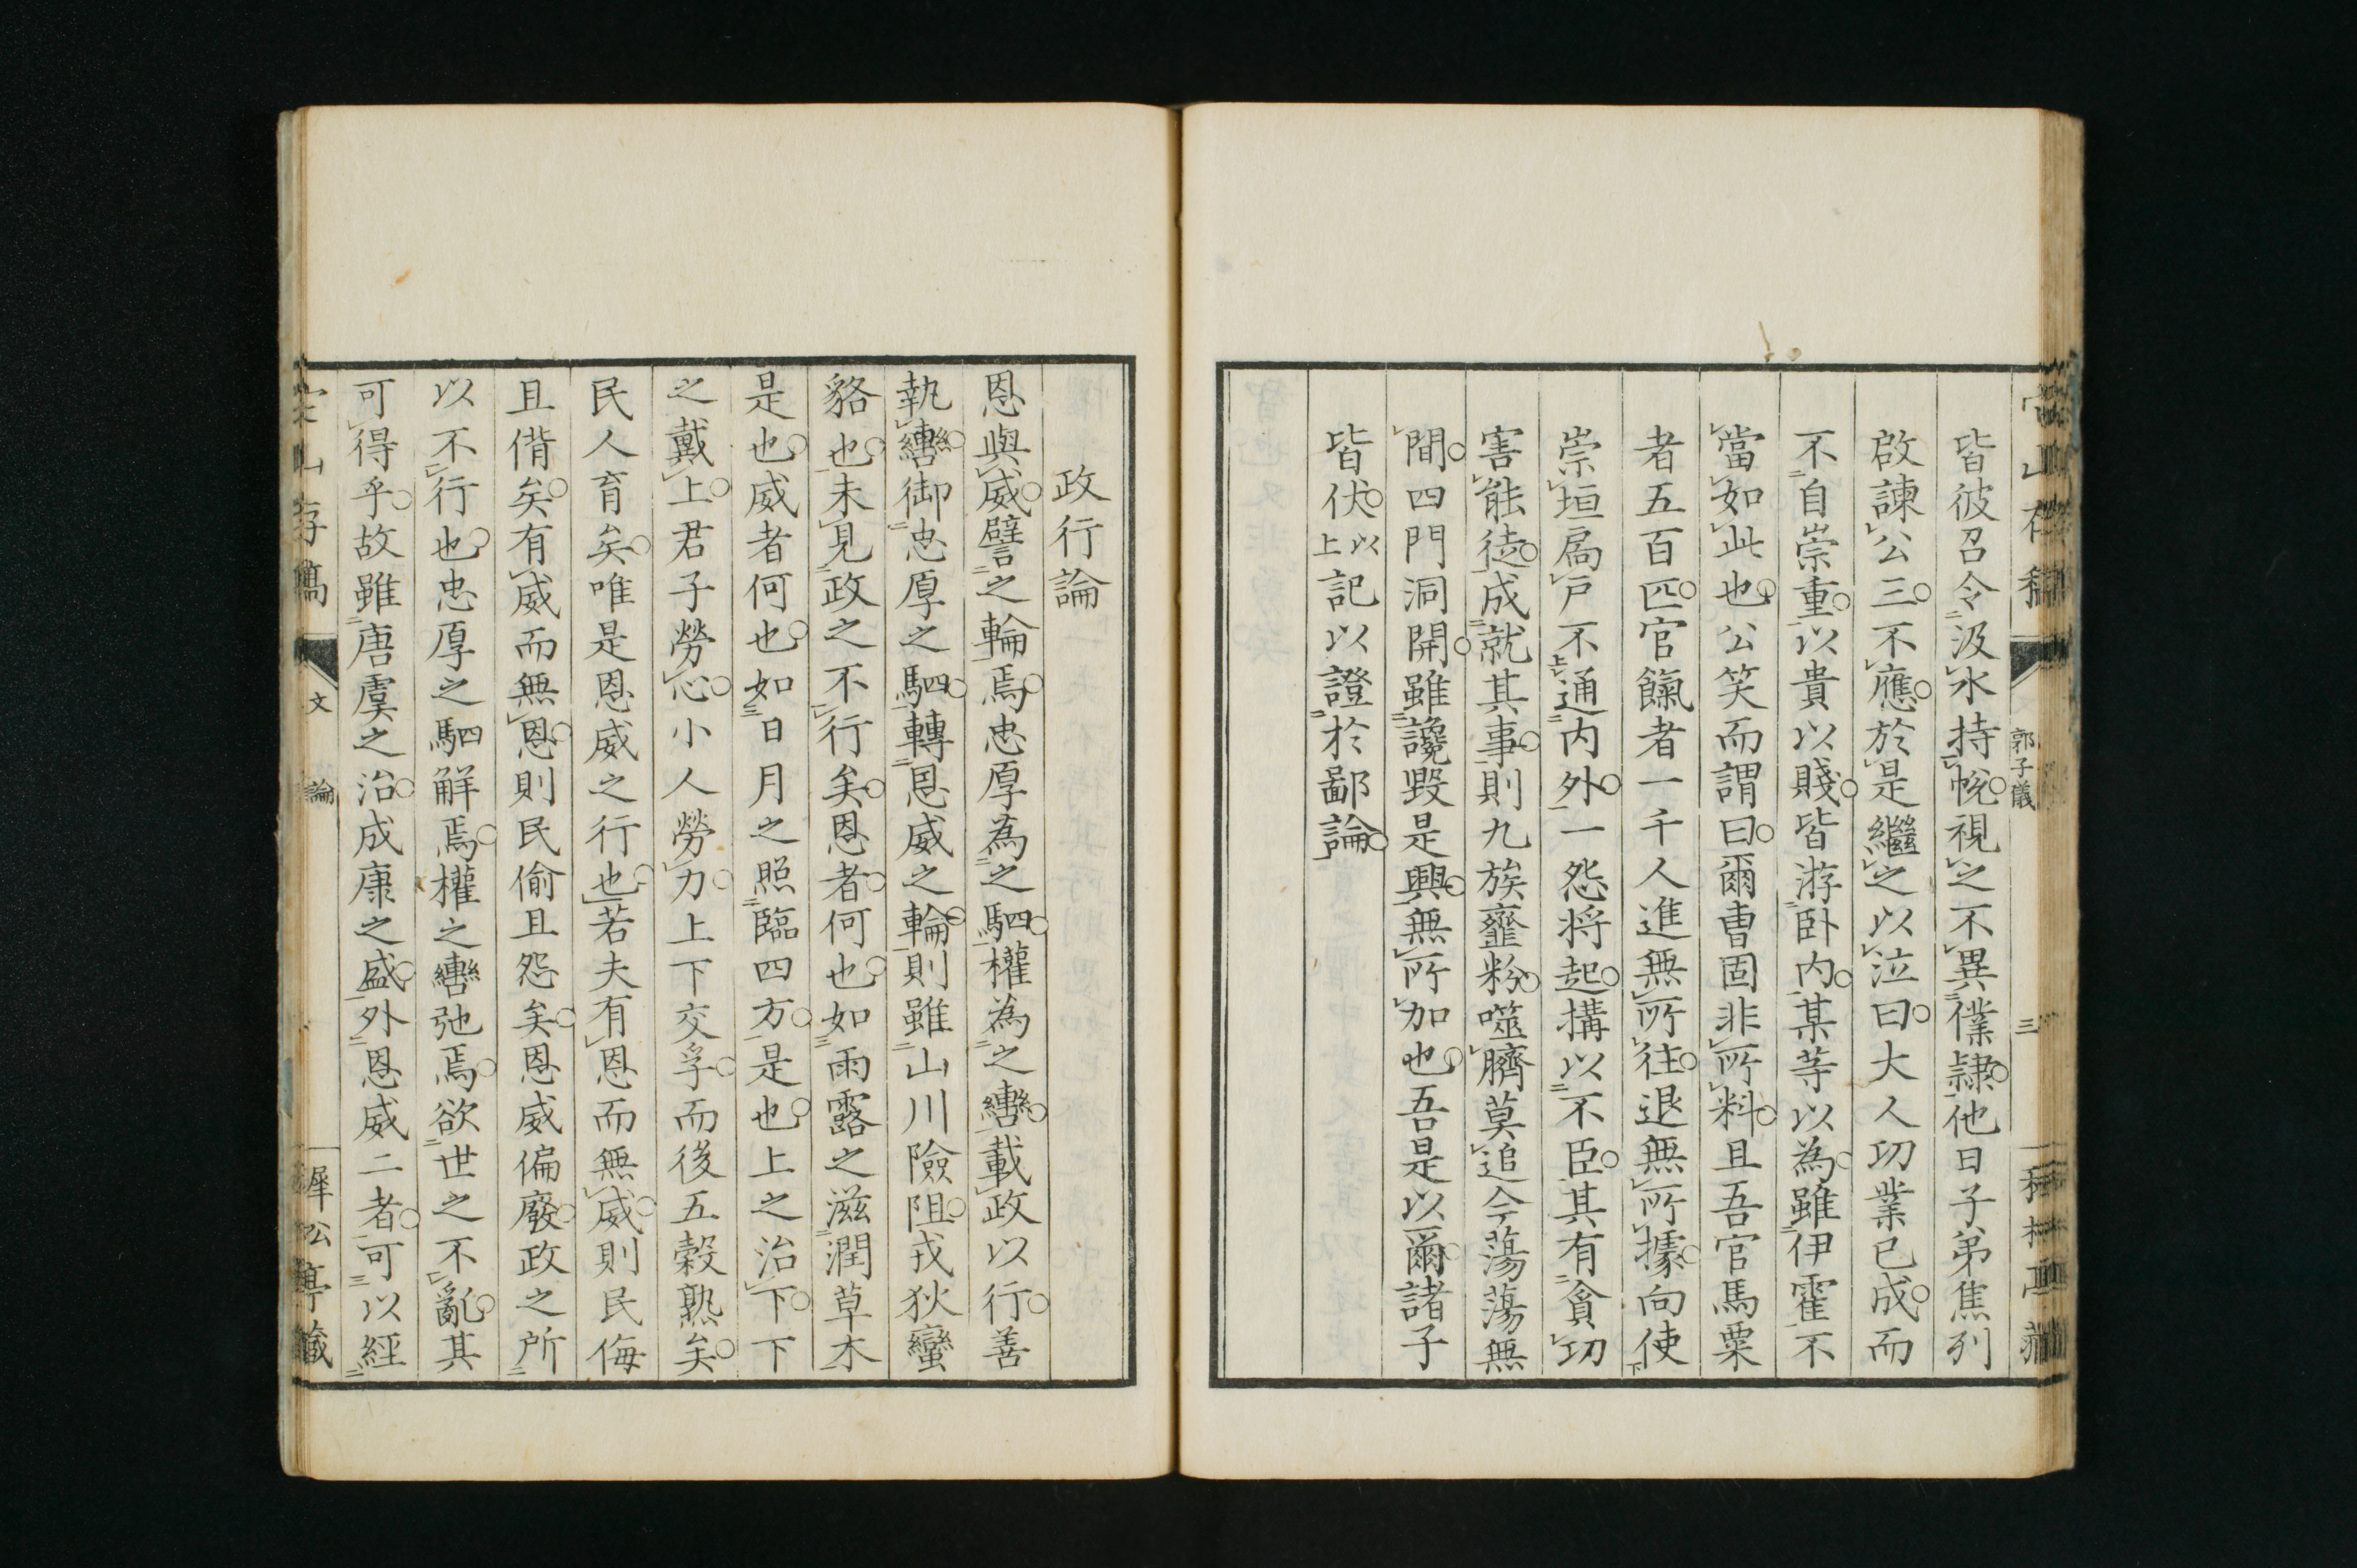 郭子儀
三
皆彼召令汲水持帨視之不異僕隷他日子弟焦列
啟諫公三不應於是繼之以泣曰大人功業已成而
不自崇重以貴以賤皆游臥内某等以為雖伊霍不
當如此也公笑而謂曰爾曹固非所料且吾官馬粟
者五百匹官餼者一千人進無所往退無所據向使
崇垣扃戸不通内外一怨将起搆以不臣其有貪功
害能徒成就其事則九族虀粉噬臍莫追今蕩蕩無
間四門洞開雖讒毀是興無所加也吾是以爾諸子
皆伏以上記以證於鄙論
政行論
恩與威譬之輪焉忠厚為之駟權為之轡載政以行善
執轡御忠厚之駟轉恩威之輪則雖山川險阻戎狄蠻
貉也未見政之不行矣恩者何也如雨露之滋潤草木
是也威者何也如日月之照臨四方是也上之治下下
之戴上君子勞心小人勞力上下交孚而後五穀熟矣
民人育矣唯是恩威之行也若夫有恩而無威則民侮
且僭矣有威而無恩則民偷且怨矣恩威偏廢政之所
以不行也忠厚之駟解焉權之轡弛焉欲世之不亂其
可得乎故雖唐虞之治成康之盛外恩威二者可以經
文
論